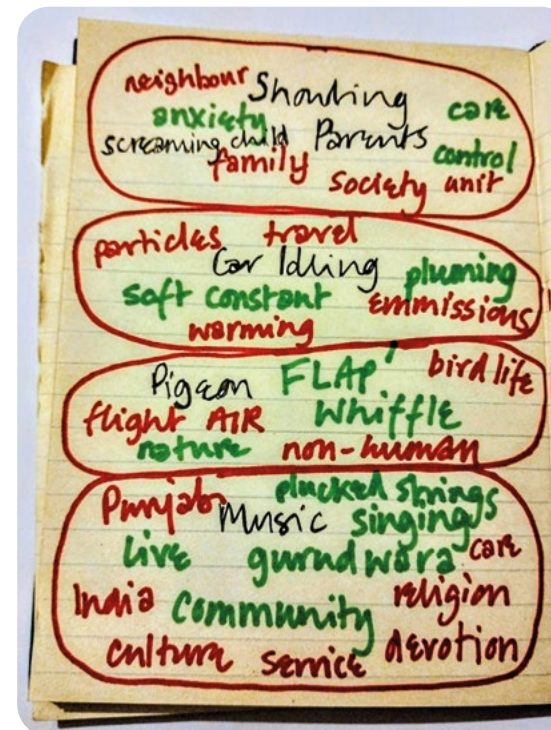 neighbour Shouting care
anxiety
screaming child Parents control
family society unit
particles travel
Car Idling pluming
soft constant emmissions
warming
Pigeon FLAP' bird life
flight AIR Whiffle
nature non-human
Punjabi plucked strings
Music singing
Live gurudwara care
India Community religion
culture service devotion